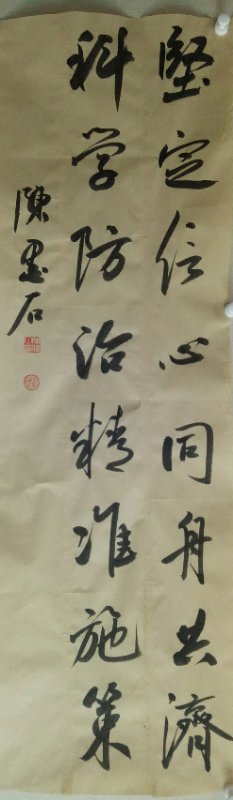 堅定信心同舟共濟
科学防治精准施策
陳墨石